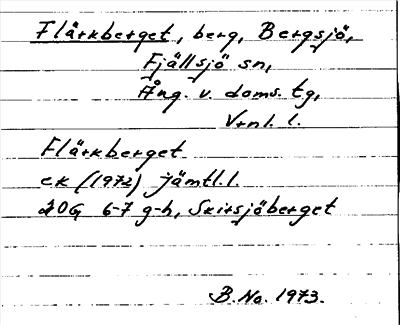 Flärkberget, berg, Bergsjö,
Fjällsjö sn,
Ång. v. doms. tg,
Vrnl. l.
Flärkberget
ek (1972) Jämtl. l.
20G 6-7 g-h, Skirsjöberget
B. No. 1973.